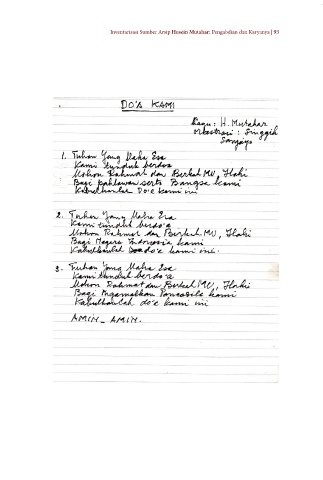 Inventarisasi Sumber Arsip Husein Mutahar: Pengabdian dan Karyanya | 93
DO'A KAMI
Lagu : H. Mutahar
Singgih
Sanjaya
1. Tuhan Yang Maha Esa
Kami tunduk berdoa
Mohon Rahmat dan Berkat MU, Ilahi
Bagi pahlawan serta Bangsa kami
Kabulkanlah Do'a kami ini
2. Tuhan Yang Maha Esa
Kami tunduk berdo'a
Mohon Rahmat dan Berkat MU, Ilahi
Bagi Negara Indonesia kami
Kabulkanlah do'a kami ini.
3. Tuhan Yang Maha Esa
Kami tunduk berdo'a
Mohon Rahmat dan Berkat MU, Ilahi
Bagi Pengamalkan Pancasila kami
Kabulkanlah do'a kami ini
AMIN_ AMIN.